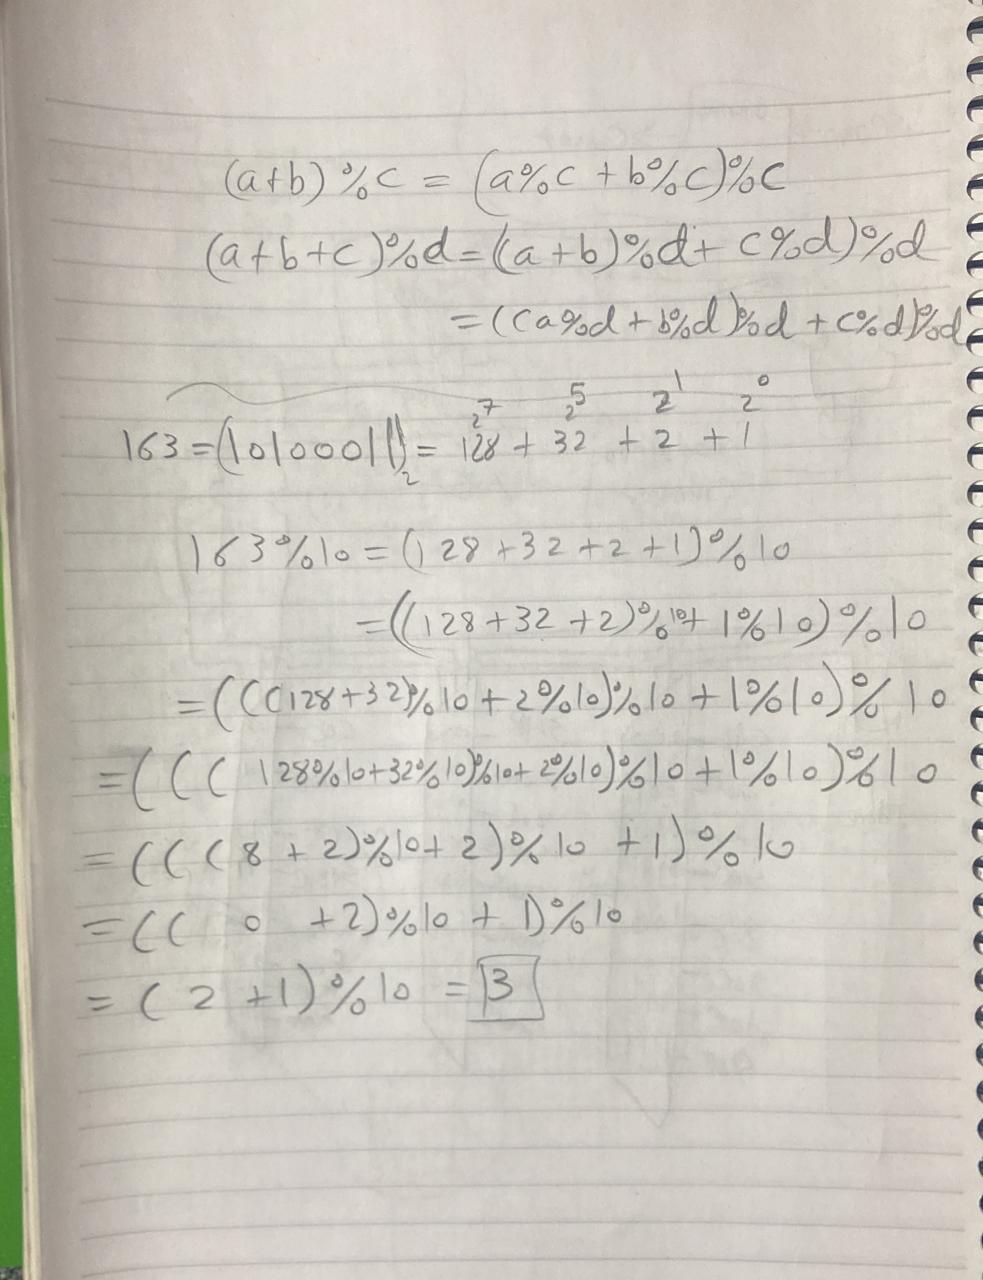 (a+b)%c = (a%c + b%c)%c
(a+b+c)%d = ((a+b)%d + c%d)%d
= ((a%d + b%d)%d + c%d)%d
2^7 2^5 2^1 2^0
163 = (10100011)_2 = 128 + 32 + 2 + 1
163%10 = (128+32+2+1)%10
= ((128+32+2)%10+ 1%10)%10
= (((128+32)%10 + 2%10)%10 + 1%10)%10
= (((128%10+32%10)%10+ 2%10)%10 +1%10)%10
= (((8 + 2)%10+ 2)%10 +1)%10
= ((0 +2)%10 + 1)%10
= (2 +1)%10 = 3